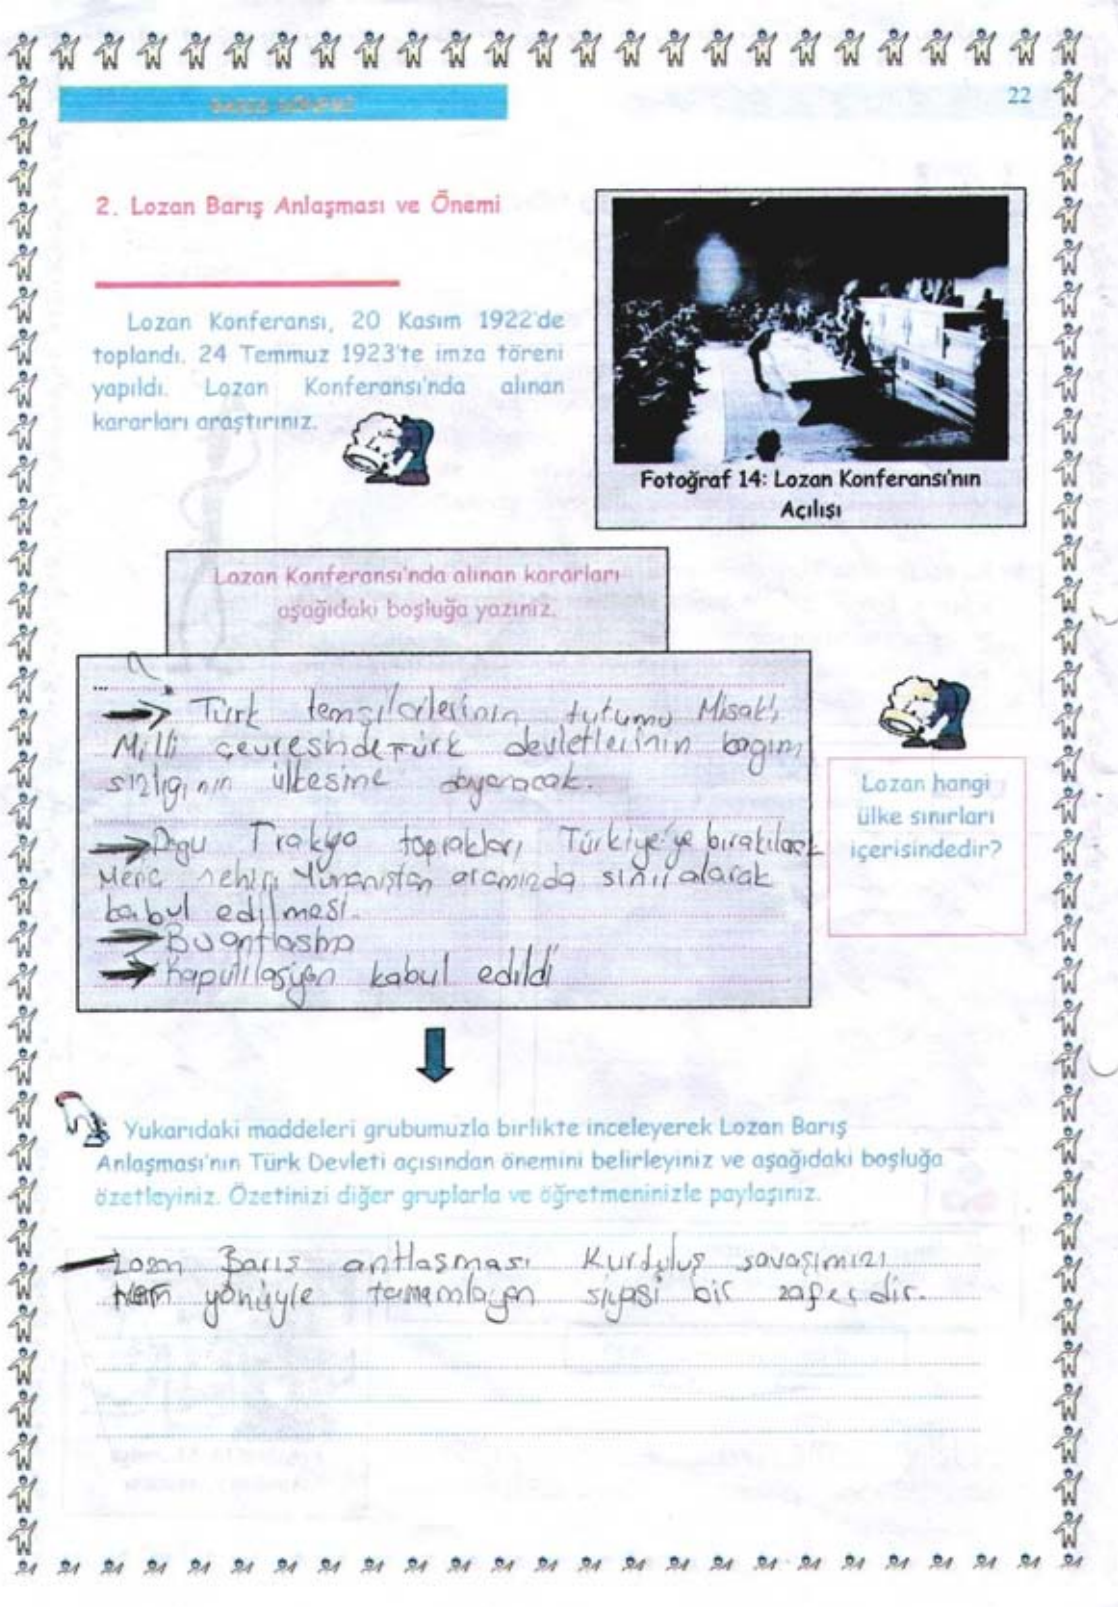 BARIŞ DÖNEMİ
22
2. Lozan Barış Anlaşması ve Önemi
Lozan Konferansı, 20 Kasım 1922'de
toplandı. 24 Temmuz 1923'te imza töreni
yapıldı. Lozan Konferansı'nda alınan
kararları araştırınız.
Fotoğraf 14: Lozan Konferansı'nın
Açılışı
Lozan Konferansı'nda alınan kararları
aşağıdaki boşluğa yazınız.
...
Türk temsilcilerinin tutumu Misak'ı
Milli çevresinde Türk devletlerinin bağım
sızlığının ülkesine dayanacak.
Dogu Trakya toprakları Türkiye'ye bırakılacak
Meriç nehiri Yunanistan aramızda sınır alarak
kabul edilmesi.
Bu antlaşma
Kaputilasyon kabul edildi
Lozan hangi
ülke sınırları
içerisindedir?
Yukarıdaki maddeleri grubumuzla birlikte inceleyerek Lozan Barış
Anlaşması'nın Türk Devleti açısından önemini belirleyiniz ve aşağıdaki boşluğa
özetleyiniz. Özetinizi diğer gruplarla ve öğretmeninizle paylaşınız.
Lozan Barış antlaşması Kurduluş savaşımızı
yönüyle tamamlayan siyasi bir zaferdir.